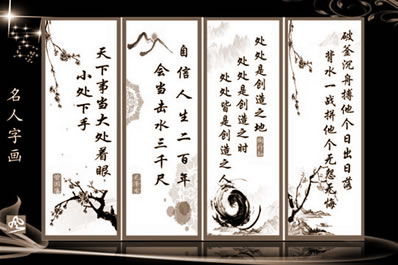 破釜沉舟搏他个日出日落
背水一战拼他个无怨无悔
处处是创造之地
处处是创造之时
处处皆是创造之人
自信人生二百年
会当击水三千尺
天下事当大处着眼
小处下手
名人字画